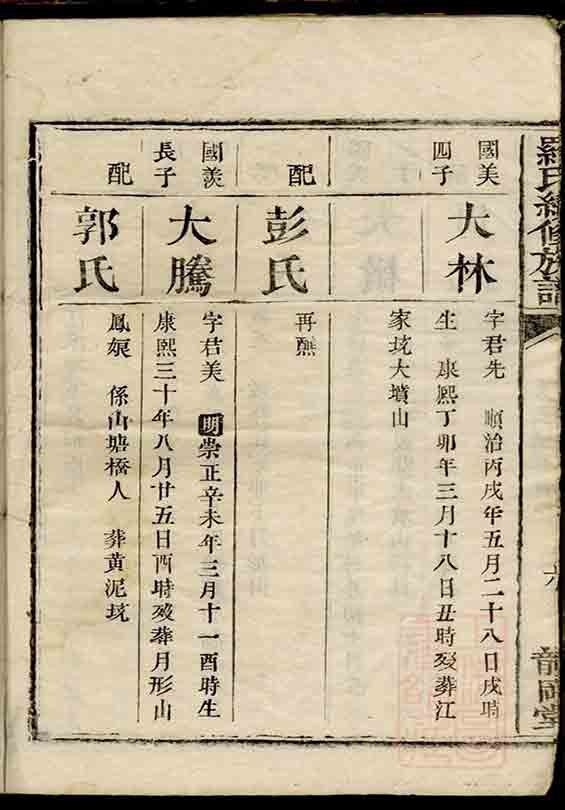 羅氏續修族譜
六
國美
四子
大林
字君先 順治丙戌年五月二十八日戌時
生 康熙丁卯年三月十八日丑時歿葬江
家坑大墳山
配
彭氏
再醮
國羨
長子
大騰
字君美 明崇正辛未年三月十一酉時生
康熙三十年八月廿五日酉時歿葬月形山
配
郭氏
鳳娘 係山塘橋人 葬黄泥坑